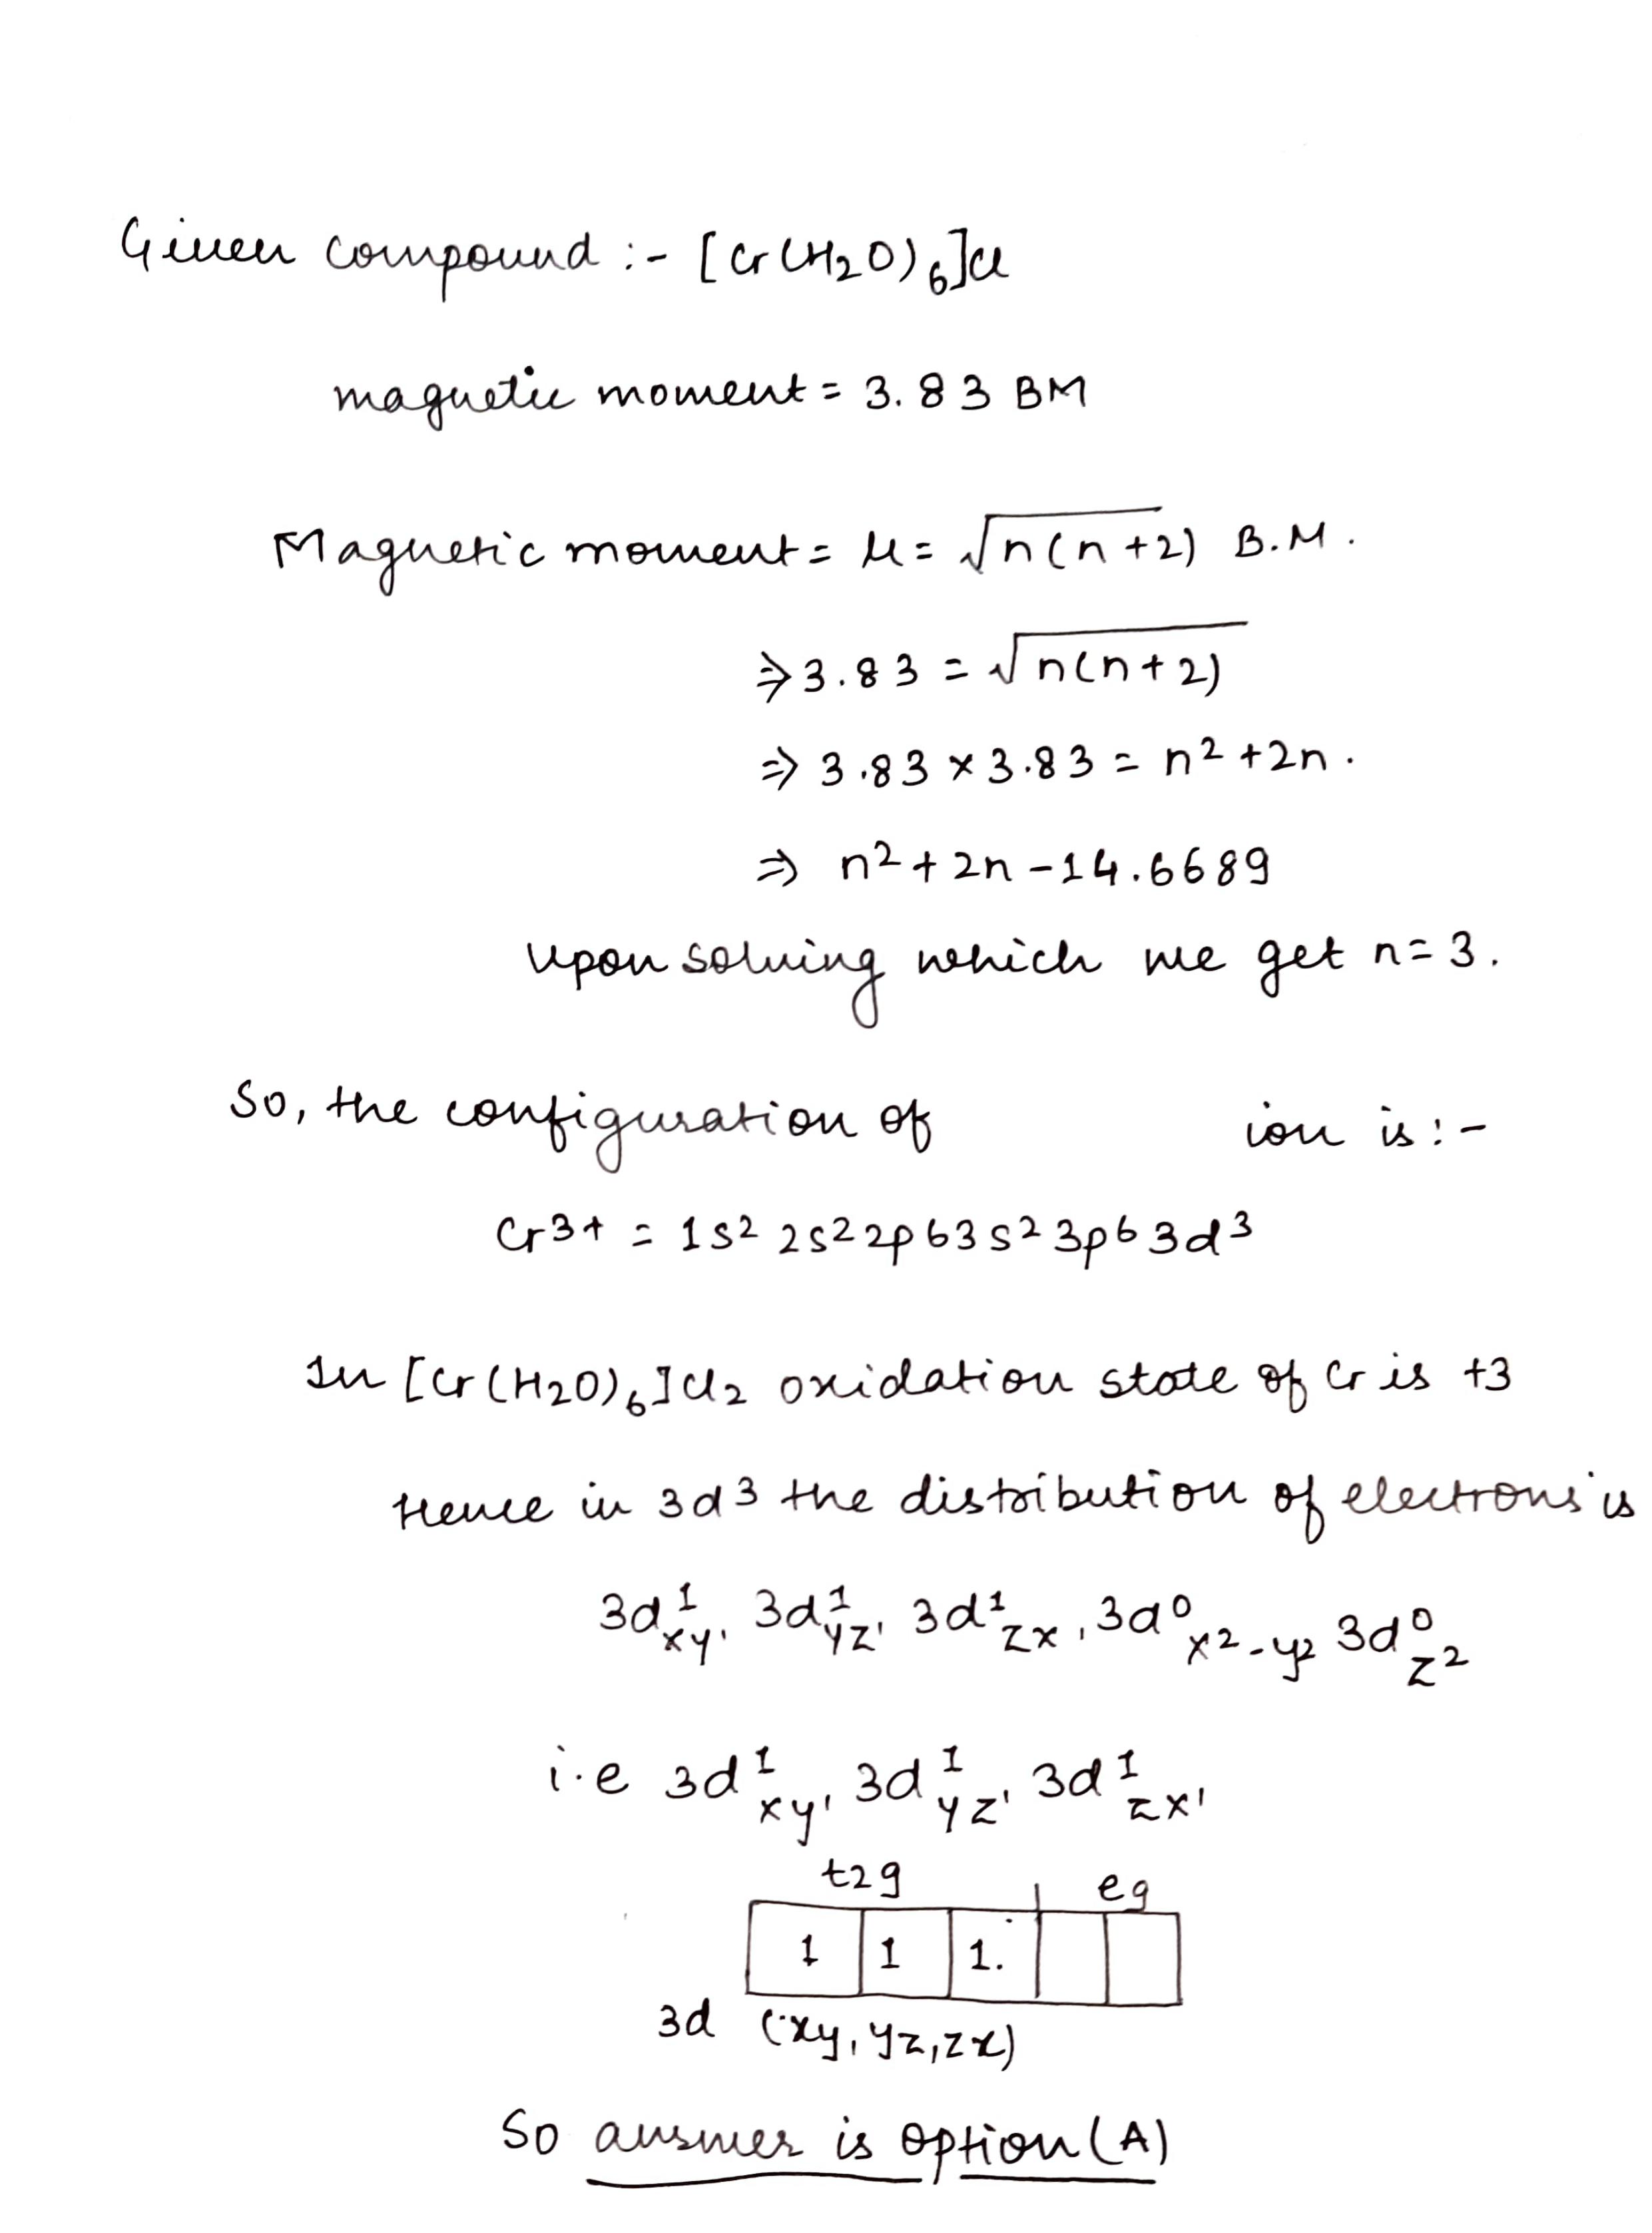 Given compound :- [Cr(H2O)6]Cl
magnetic moment = 3.83 BM
Magnetic moment = μ = √n(n+2) B.M.
⇒ 3.83 = √n(n+2)
⇒ 3.83 × 3.83 = n2 + 2n.
⇒ n2 + 2n - 14.6689
Upon solving which we get n = 3.
So, the configuration of ion is :-
Cr3+ = 1s2 2s2 2p6 3s2 3p6 3d3
In [Cr(H2O)6]Cl2 oxidation state of Cr is +3
Hence in 3d3 the distribution of electrons is
3d1xy, 3d1yz, 3d1zx, 3d0x2-y2 3d0z2
i.e 3d1xy, 3d1yz, 3d1zx,
t2g eg
1 1 1.
3d (xy, yz, zx)
So answer is option (A)